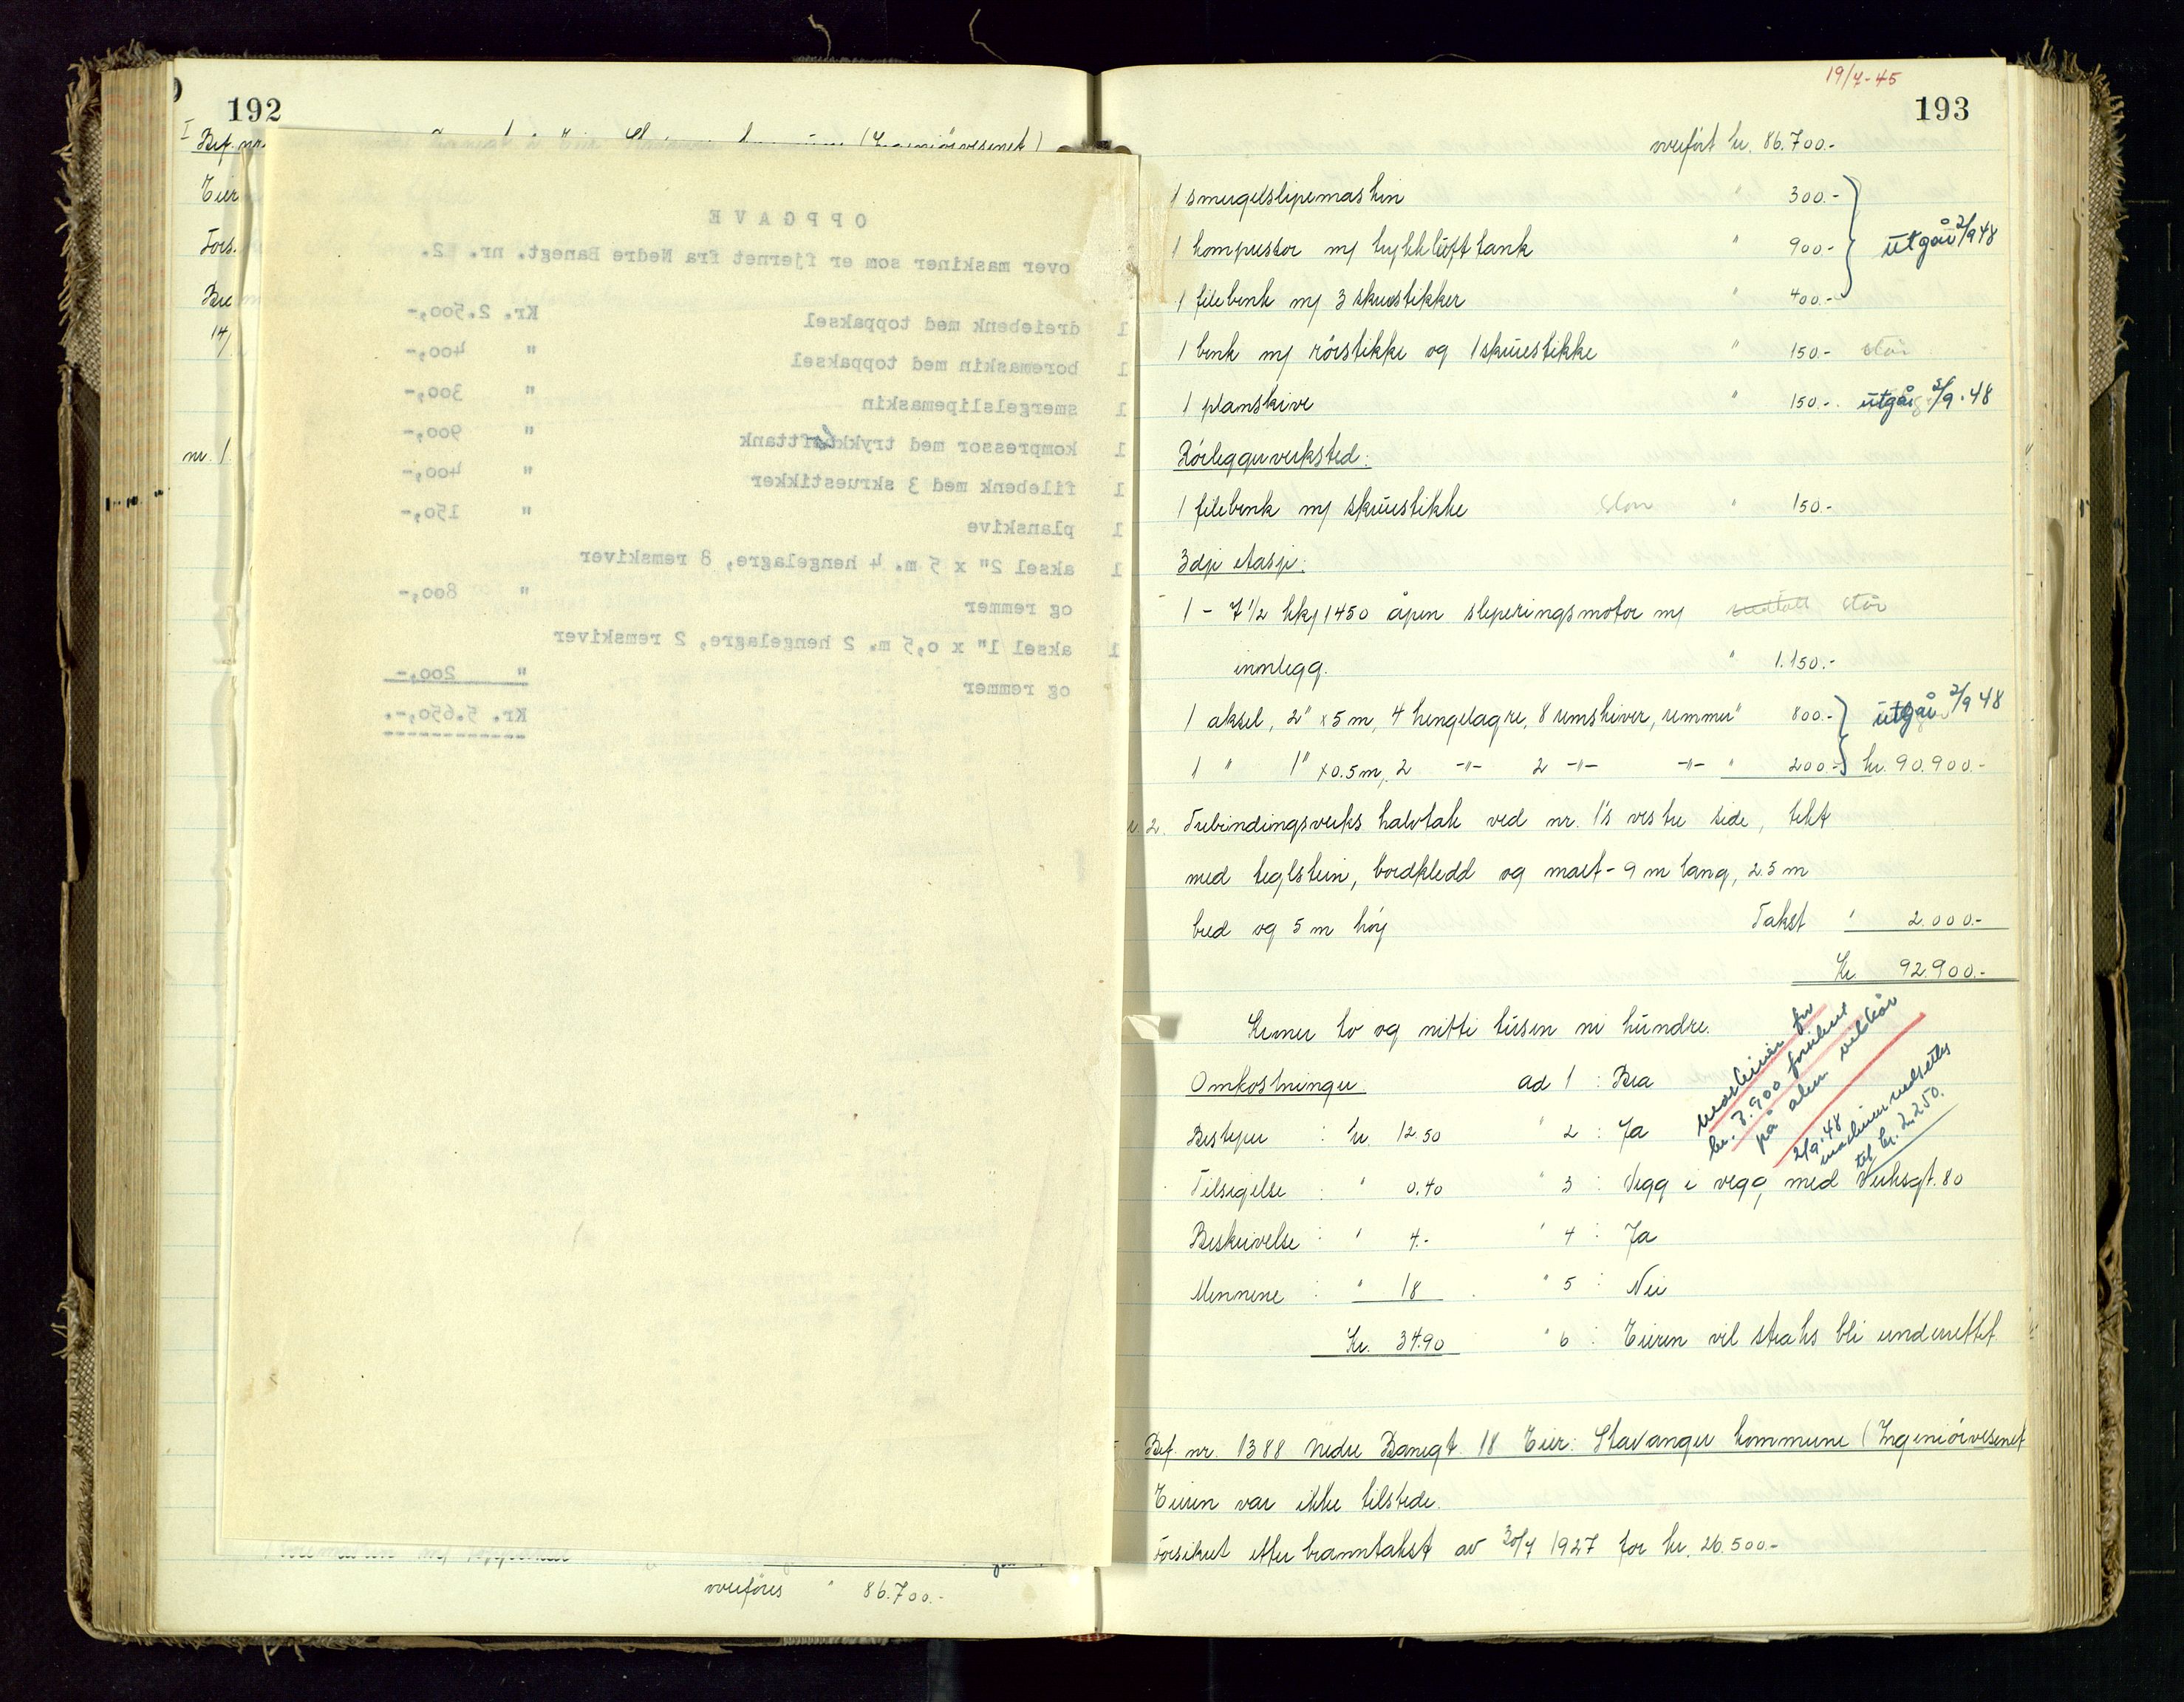 192
Brf. nr. (Ingeniörvesenet)
Eier
Fors.
14/
nr. 1
OPPGAVE
over maskiner som er fjernet fra Nedre Banegt. nr. 12.
1 dreiebenk med toppaksel Kr. 2.500,-
1 boremaskin med toppaksel " 400,-
1 smergelslipemaskin " 300,-
1 kompressor med trykklufttank " 900,-
1 filebenk med 3 skruestikker " 400,-
1 planskive " 150,-
1 aksel 2" x 5 m. 4 hengelagre, 8 remskiver
og remmer " 800,-
1 aksel 1" x 0,5 m. 2 hengelagre, 2 remskiver
og remmer " 200,-
Kr. 5.650,-.
overføres " 86.700.-
19/7-45
193
overført kr. 86.700.-
1 smergelslipemaskin " 300.-
1 kompressor m/ trykklüfttank " 900.- ütgår 2/9 48
1 filebenk m/ 3 skruestikker " 400.-
1 benk m/ rörstikke og 1 skrüestikke " 150.- står
1 planskive " 150.- ütgår 2/9.48
Rörleggerverksted:
1 filebenk m/ skrüestikke står " 150.-
3dje etasje:
1 - 7 1/2 hk/1450 åpen sleperingsmotor m/ står
innlegg. " 1.150.-
1 aksel, 2" x 5 m, 4 hengelagre, 8 remskiver, remmer " 800.- ütgår 2/9 48
1 " 1" x 0.5 m, 2 -"- 2 -"- -"- " 200.- kr. 90.900.-
nr. 2. Trebindingsverks halvtak ved nr. 1's vestre side, tekt
med teglstein, bordkledd og malt - 9 m lang, 2.5 m
bred og 5 m høy Takst " 2.000.-
Kr. 92.900.-
Kroner to og nitti tüsen ni hündre.
maskiner for
kr. 7.900 forsikret
på alm vilkår
2/9.48
maskiner nedsettes
til kr. 2.250.
Omkostninger ad 1 : Bra
Bestyrer : kr. 12.50 " 2 : Ja
Tilsigelse : " 0.40 " 3 : Vegg i vegg med Verksgt. 80
Beskrivelse : " 4.- " 4 : Ja
Mennene : " 18 " 5 : Nei
Kr. 34.90 " 6 : Eieren vil straks bli underrettet
Brf. nr. 1388 Nedre Banegt. 18 Eier: Stavanger kommune (Ingeniörvesenet
Eieren var ikke tilstede.
Forsikret efter branntakst av 30/7 1927 for kr. 26.500.-